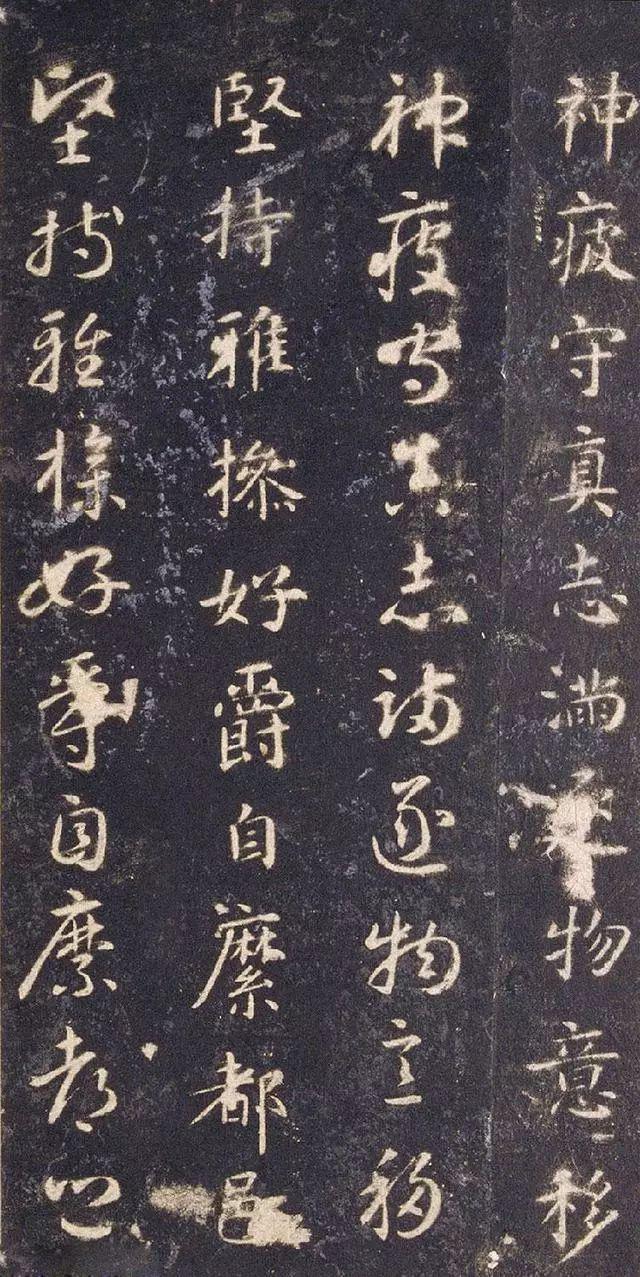 神疲守真志滿物意移
神疲守真志滿逐物意移
堅持雅操好爵自縻都邑
堅持雅操好爵自縻都邑